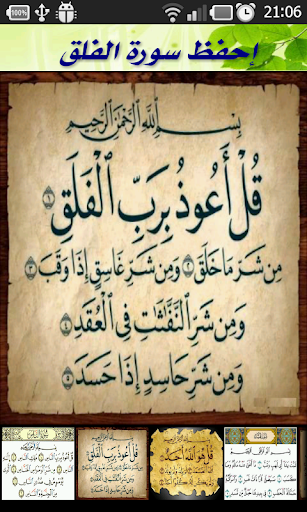 100%
21:06
إحفظ سورة الفلق
بِسْمِ اللَّهِ الرَّحْمَٰنِ الرَّحِيمِ
قُلْ أَعُوذُ بِرَبِّ الْفَلَقِ ١
مِن شَرِّ مَا خَلَقَ ٢ وَمِن شَرِّ غَاسِقٍ إِذَا وَقَبَ ٣
وَمِن شَرِّ النَّفَّٰثَٰتِ فِي الْعُقَدِ ٤
وَمِن شَرِّ حَاسِدٍ إِذَا حَسَدَ ٥
قُلْ أَعُوذُ بِرَبِّ الْفَلَقِ
قُلْ هُوَ اللَّهُ أَحَدٌ